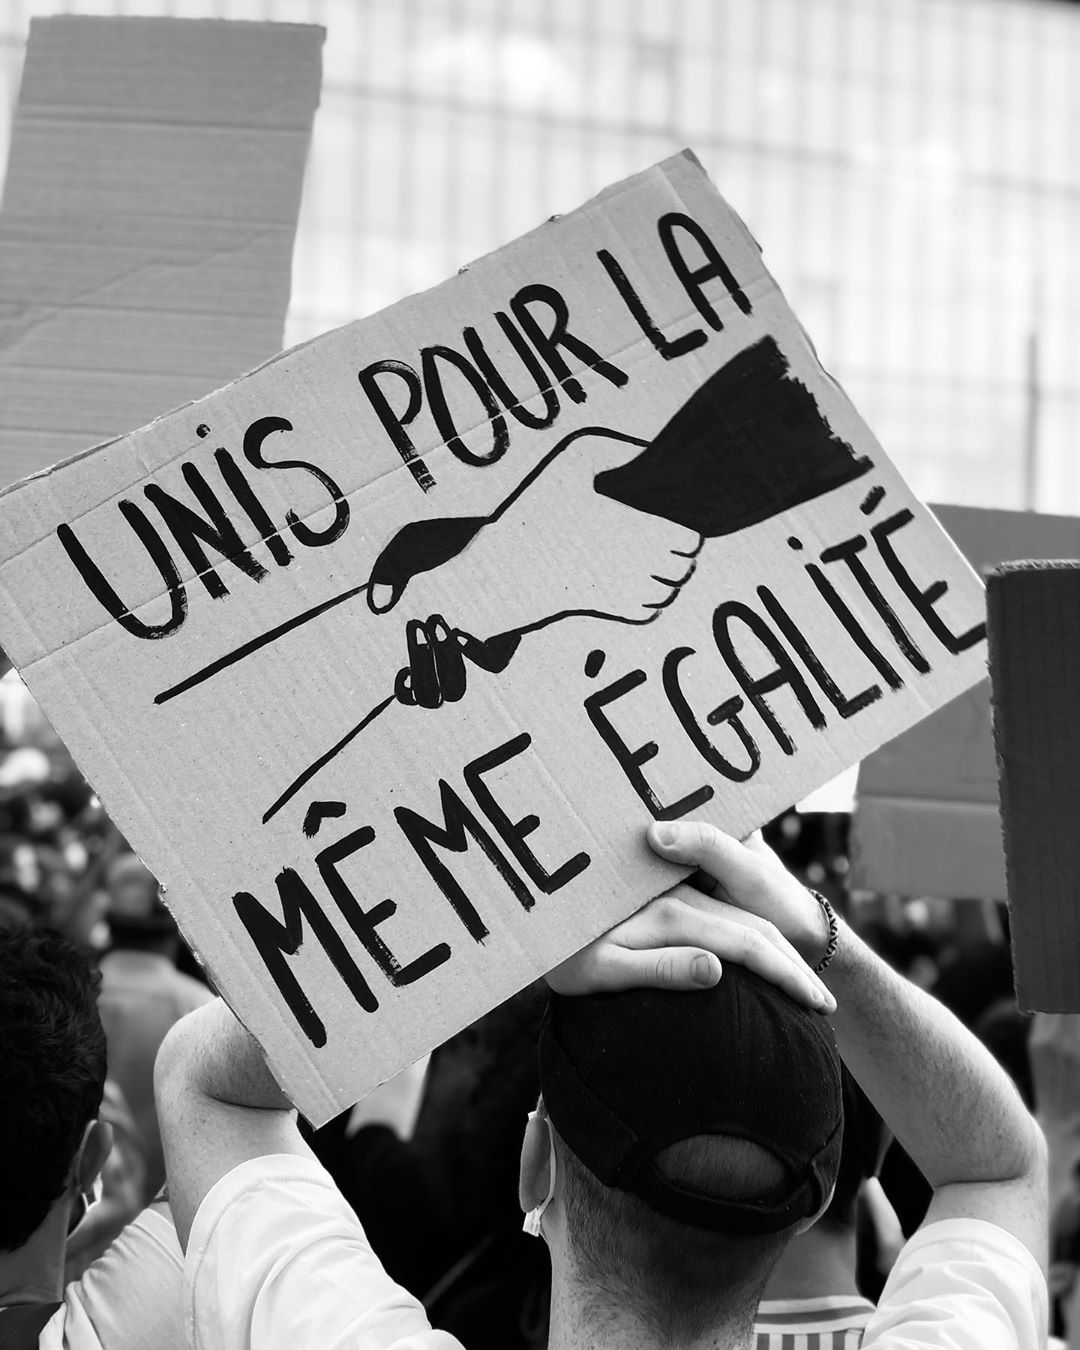 UNIS POUR LA
MÊME ÉGALITÉ